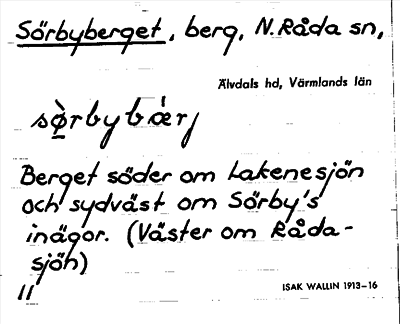 Sörbyberget, berg, N. Råda sn,
Älvdals hd, Värmlands län
sö̀rbybær̀j
Berget söder om Lakenesjön
och sydväst om Sörby's
inägor. (Väster om Råda-
sjön)
II
ISAK WALLIN 1913-16